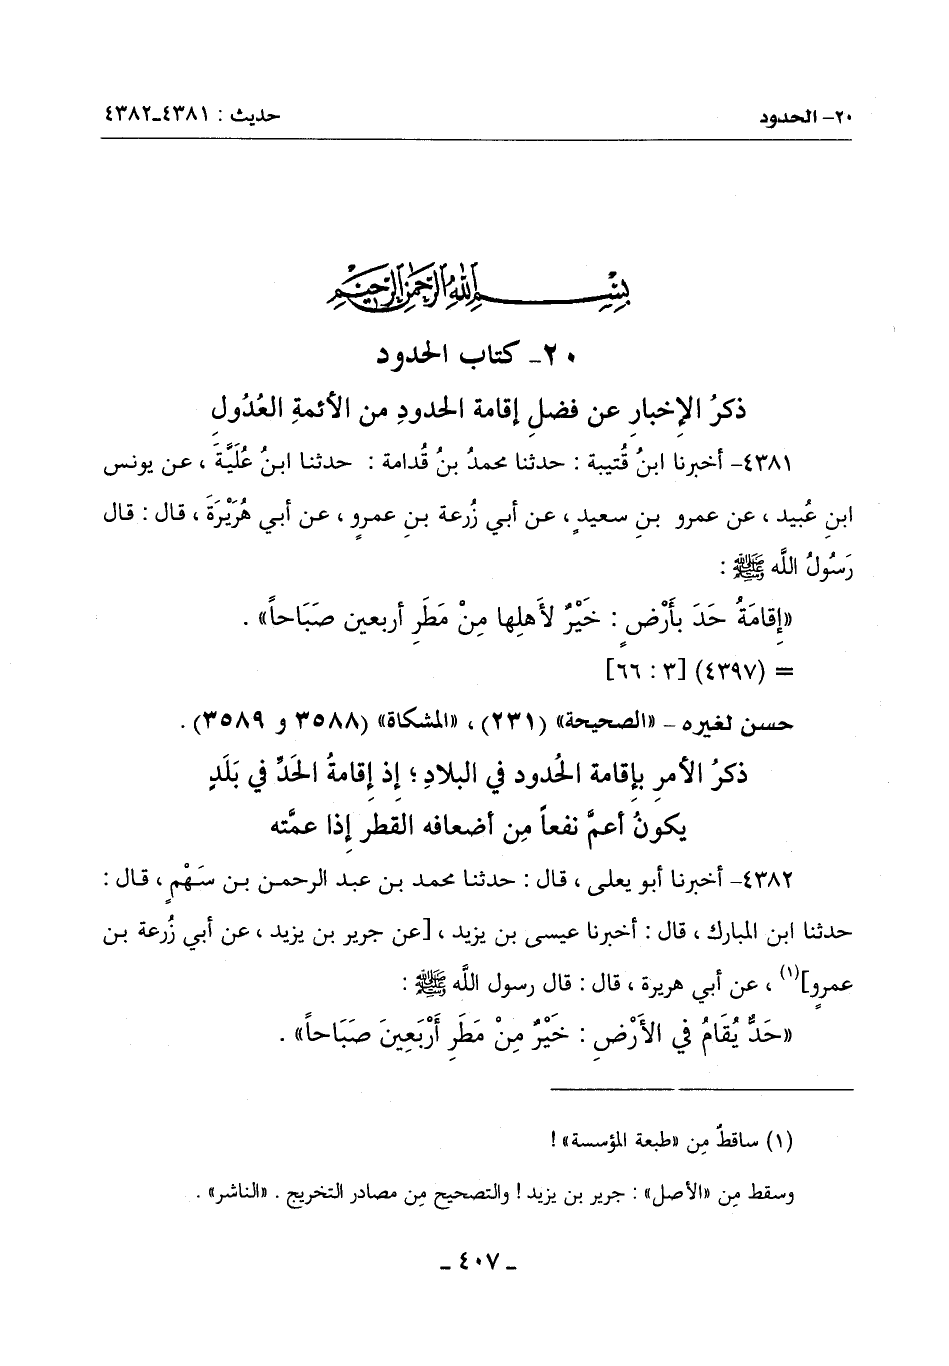 ٢٠- الحدود
حديث : ٤٣٨١-٤٣٨٢
بِسْمِ اللهِ الرَّحْمٰنِ الرَّحِيْمِ
٢٠- كتاب الحدود
ذكرُ الإخبارِ عن فضلِ إقامة الحدودِ من الأئمةِ العُدُولِ
٤٣٨١- أخبرنا ابنُ قُتيبة : حدثنا محمدُ بنُ قُدامة : حدثنا ابنُ عُلَيَّةَ ، عن يونس
ابنِ عُبيد ، عن عمرو بنِ سعيدٍ ، عن أبي زُرعة بنِ عمروٍ ، عن أبي هُرَيْرَةَ ، قال : قال
رَسُولُ اللَّه ﷺ :
«إقامَةُ حَدَ بأَرْضٍ : خَيْرٌ لأَهلِها مِنْ مَطَرِ أربعين صَبَاحاً» .
= (٤٣٩٧) [٣ : ٦٦]
حسن لغيره - «الصحيحة» (٢٣١) ، «المشكاة» (٣٥٨٨ و ٣٥٨٩) .
ذكرُ الأمرِ بإقامة الحُدود في البلادِ ؛ إذ إقامةُ الحَدِّ في بَلَدٍ
يكونُ أعمَّ نفعاً مِن أضعافه القطر إذا عمَّته
٤٣٨٢- أخبرنا أبو يعلى ، قال : حدثنا محمد بن عبد الرحمن بن سَهْمٍ ، قال :
حدثنا ابن المبارك ، قال : أخبرنا عيسى بن يزيد ، [عن جرير بن يزيد ، عن أبي زُرعة بن
عمروٍ](١) ، عن أبي هريرة ، قال : قال رسول اللَّه ﷺ :
«حَدٌّ يُقَامُ في الأَرْضِ : خَيْرٌ مِنْ مَطَرِ أَرْبَعِينَ صَبَاحاً» .
(١) ساقطٌ مِن «طبعة المؤسسة» !
وسقط مِن «الأصل» : جرير بن يزيد ! والتصحيح مِن مصادر التخريج . «الناشر» .
- ٤٠٧ -